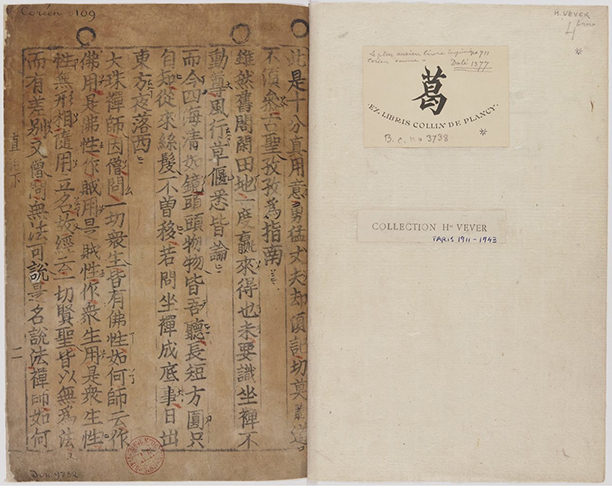 Coréen 109
此是十分真用意勇猛丈夫却須記切莫聞道
不須參古聖孜孜爲指南
雖然舊閣閑田地一度贏來得也未要識坐禪不
動尊風行草偃悉皆論
而今四海清如鏡頭頭物物皆吾聽長短方圓只
自知從來絲髮不曾移若問坐禪成底事日出
東方夜落西
大珠禪師因僧問一切衆生皆有佛性如何師云作
佛用是佛性作賊用是賊性作衆生用是衆生性
性無形相隨用立名故經云一切賢聖皆以無爲法
而有差別又僧問無法可說是名說法禪師如何
直 下
二
H. VEVER
4
Le plus ancien livre
coréen connu
Daté 1377
葛
EX-LIBRIS COLLIN DE PLANCY
B. C. no 3738
COLLECTION Hri VEVER
PARIS 1911-1943